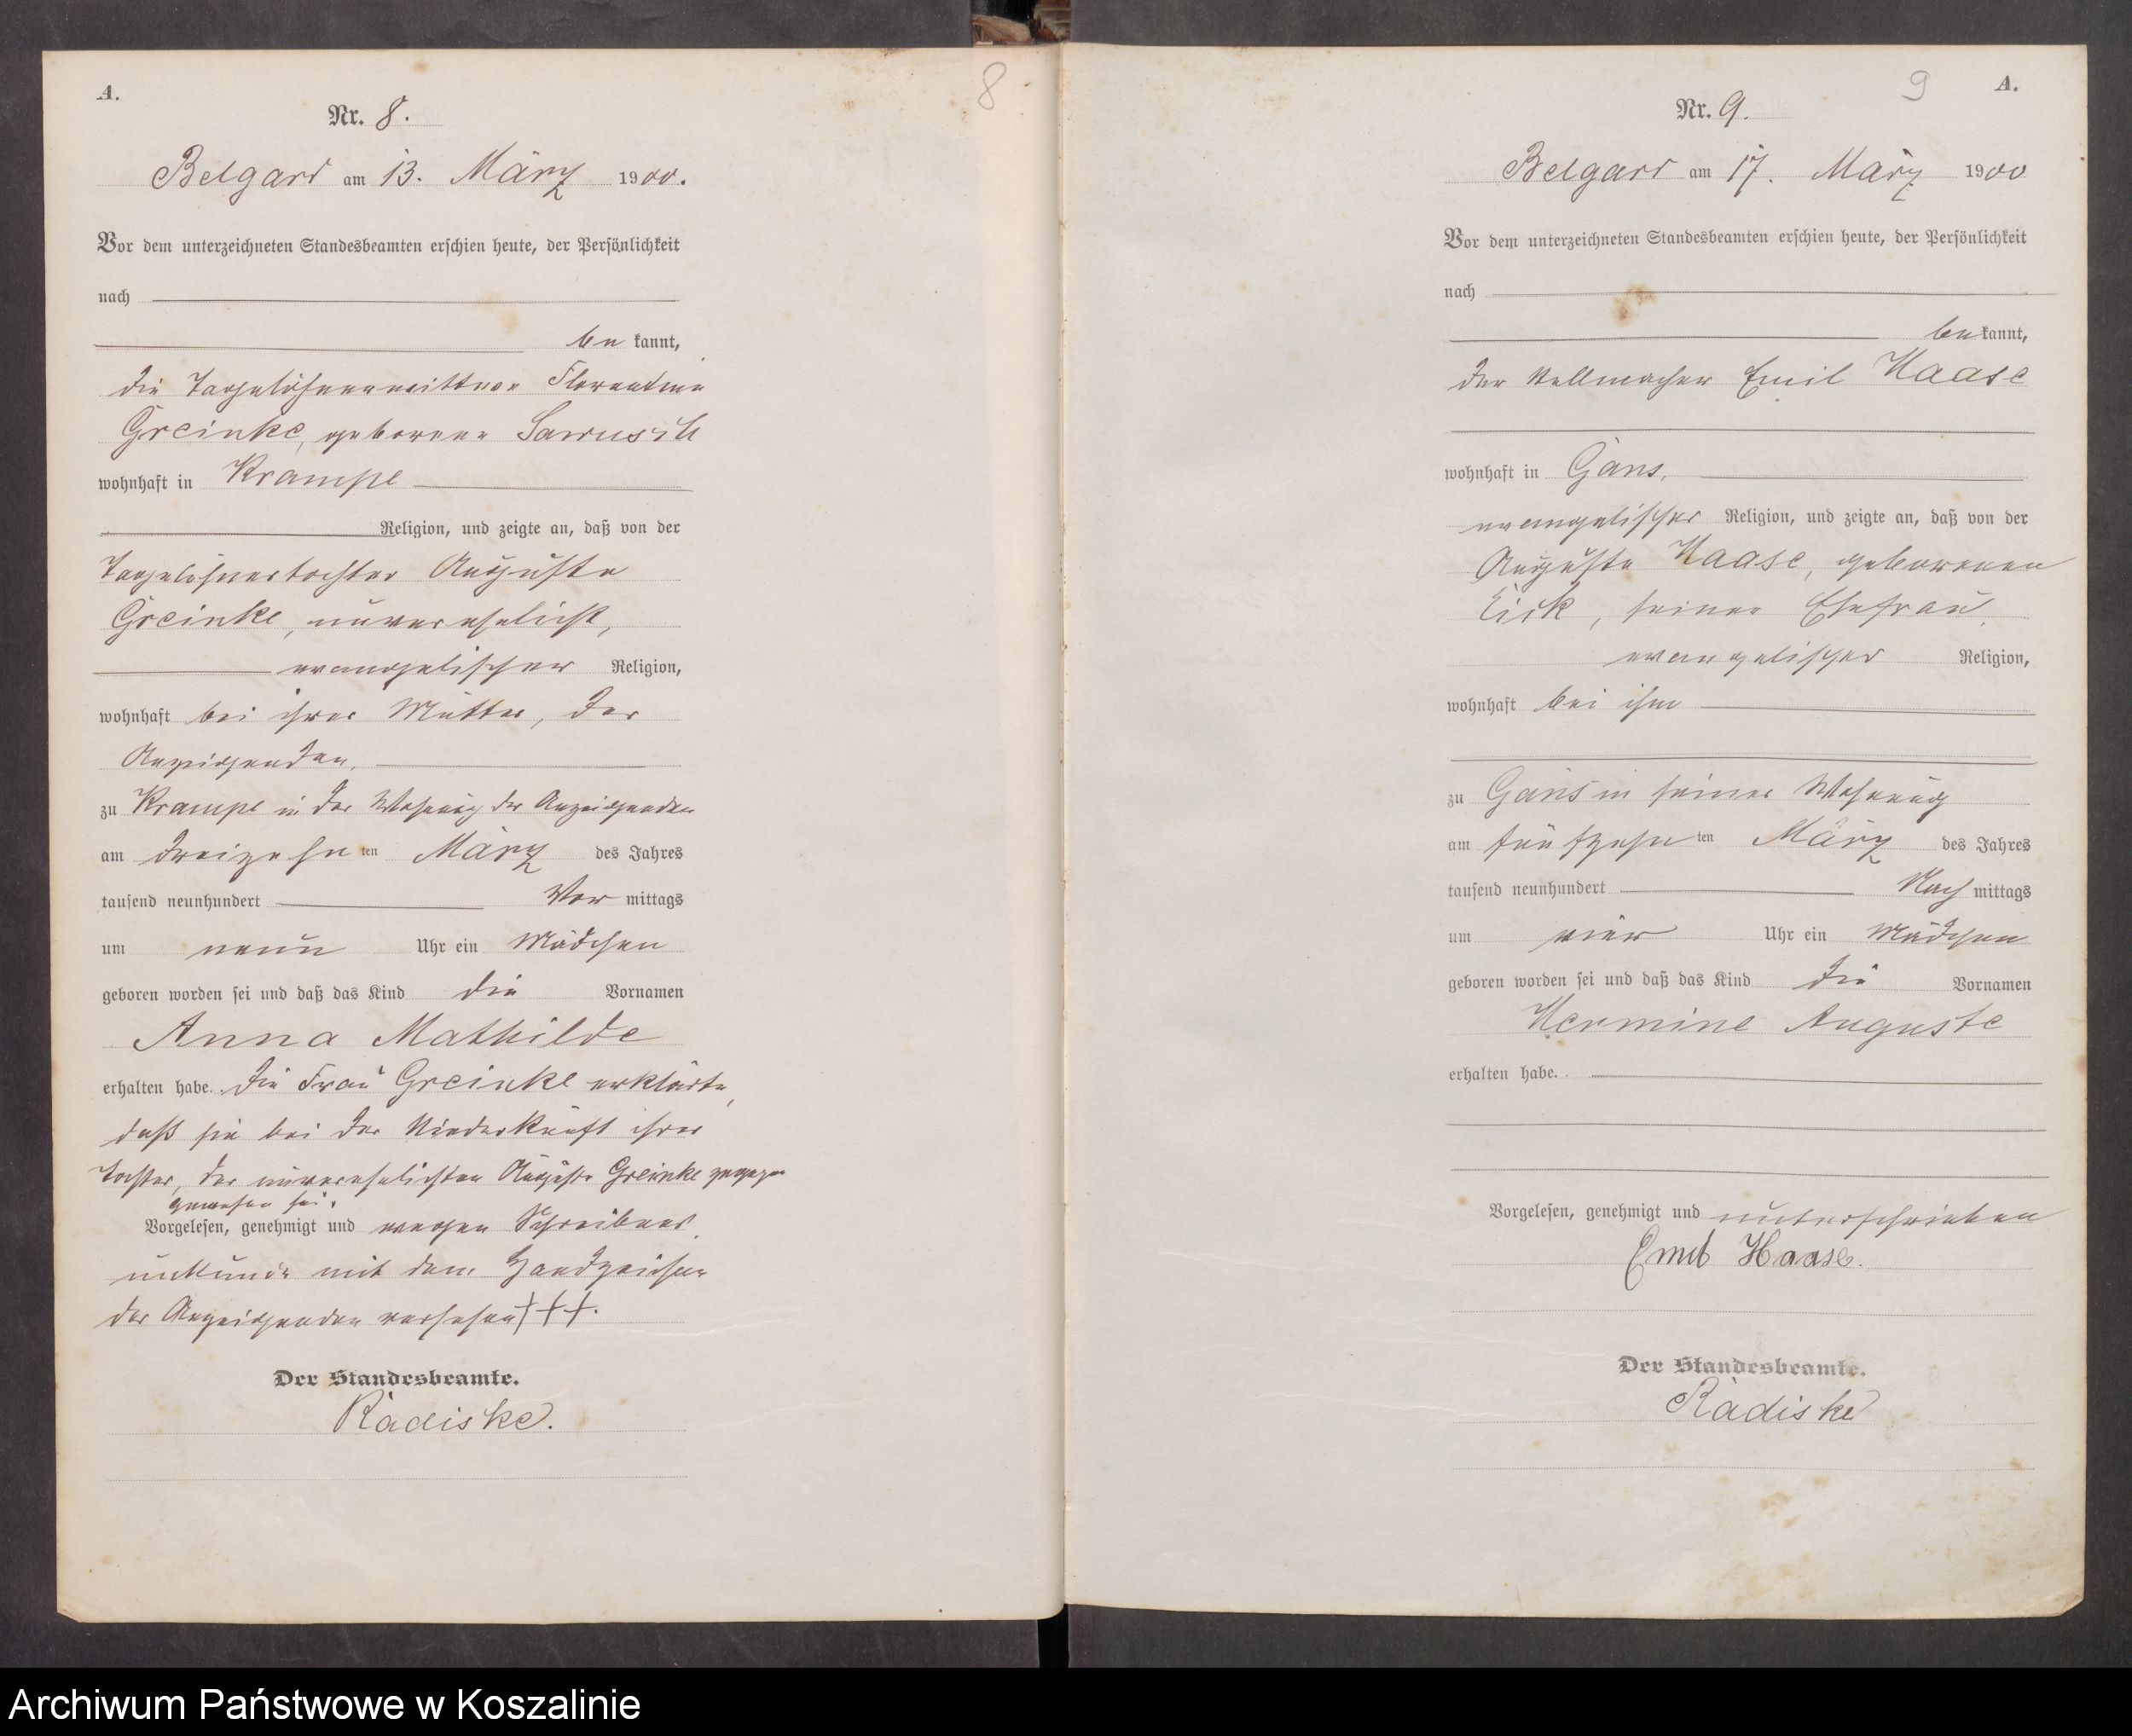 A.
8
Nr. 8.
Belgard am 13. März 1900.
Vor dem unterzeichneten Standesbeamten erschien heute, der Persönlichkeit
nach
be kannt,
die Tagelöhnerwittwe Florentine
Greinke, geborene
wohnhaft in Krampe
Religion, und zeigte an, daß von der
Tagelöhnertochter Auguste
Greinke, unverehelicht,
evangelischer Religion,
wohnhaft bei ihrer Mutter, der
Anzeigenden,
zu Krampe in der Wohnung der Anzeigenden
am dreizehn ten März des Jahres
tausend neunhundert Vor mittags
um neun Uhr ein Mädchen
geboren worden sei und daß das Kind die Vornamen
Anna Mathilde
erhalten habe. Die Frau Greinke erklärte,
daß sie bei der Niederkunft ihrer
Tochter, der unverehelichten Auguste Greinke zugegen
gewesen sei.
Vorgelesen, genehmigt und wegen Schreibens
unkunde mit dem Handzeichen
der Anzeigenden versehen +++.
Der Standesbeamte.
Radiske.
9
A.
Nr. 9.
Belgard am 17. März 1900
Vor dem unterzeichneten Standesbeamten erschien heute, der Persönlichkeit
nach
be kannt,
der Stellmacher Emil Haase
wohnhaft in Gans,
evangelischer Religion, und zeigte an, daß von der
Auguste Haase, geborenen
seiner Ehefrau,
evangelischer Religion,
wohnhaft bei ihm
zu Gans in seiner Wohnung
am fünfzehn ten März des Jahres
tausend neunhundert Nach mittags
um vier Uhr ein Mädchen
geboren worden sei und daß das Kind die Vornamen
Hermine Auguste
erhalten habe.
Vorgelesen, genehmigt und unterschrieben
Emil Haase.
Der Standesbeamte.
Radiske
Archiwum Państwowe w Koszalinie